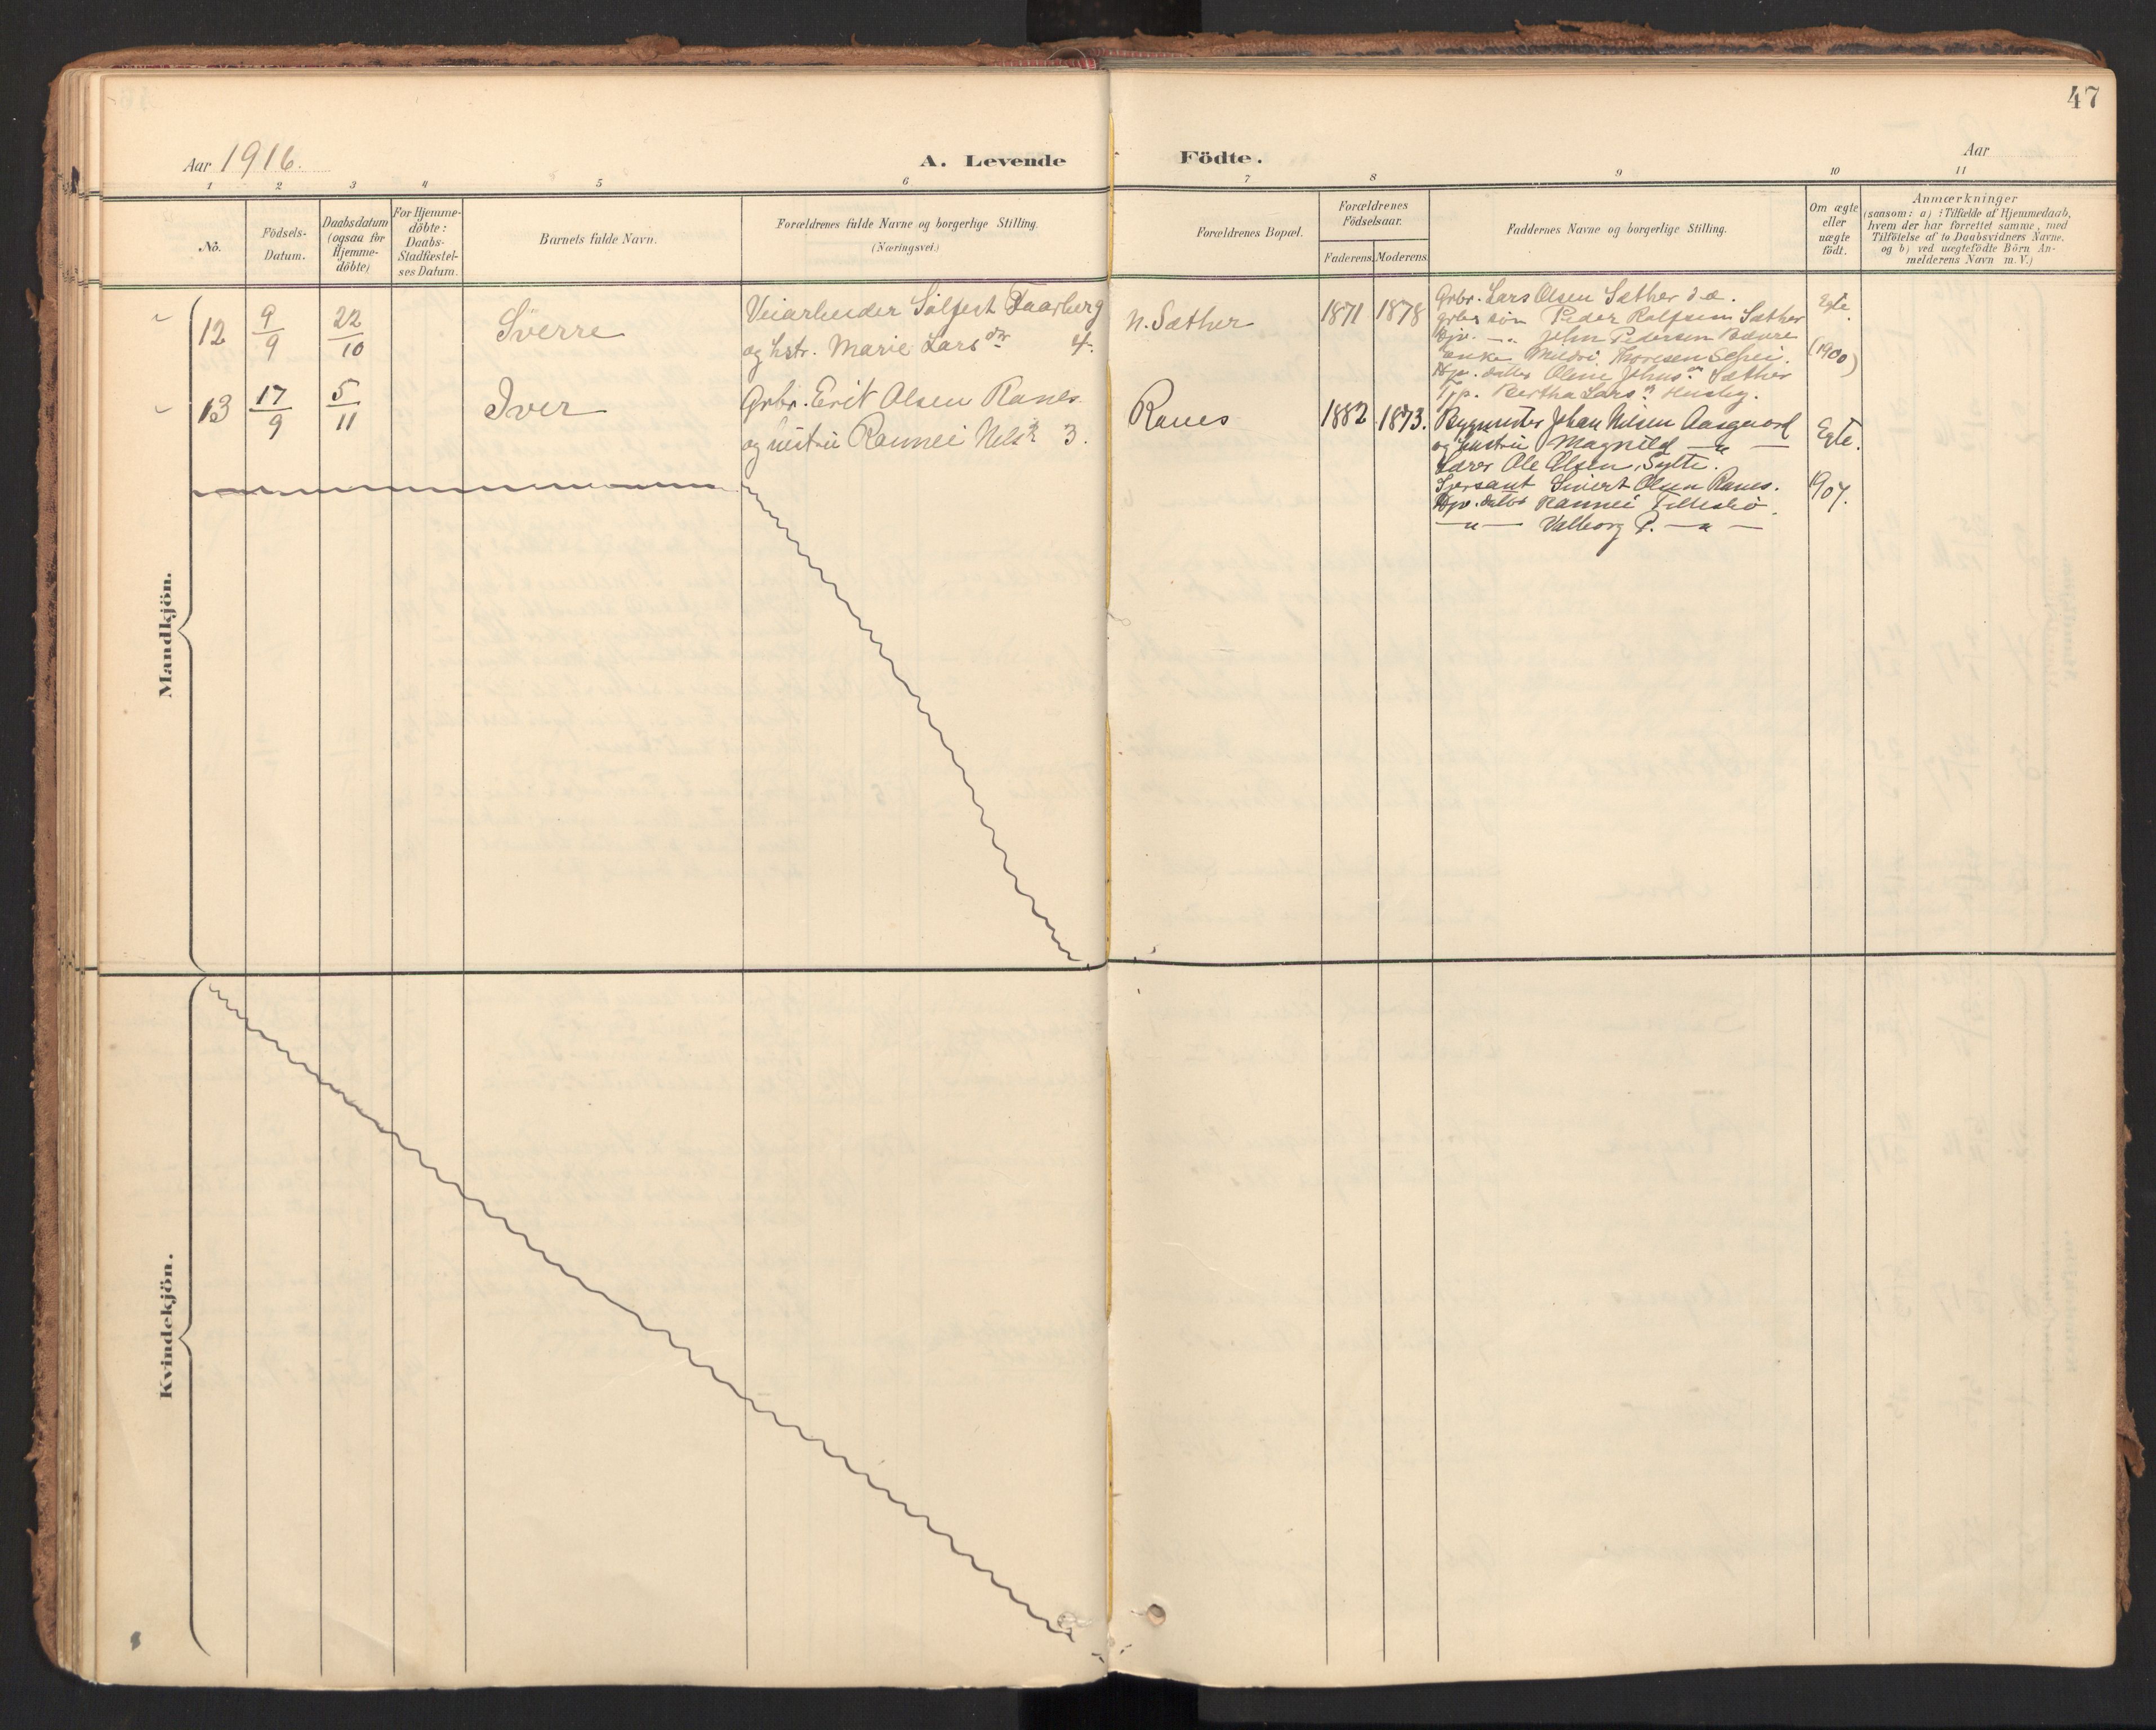 47
Aar 1916.
A. Levende Födte.
Aar
1 2 3 4 5 6 7 8 9 10 11
No.
Födsels-
Datum.
Daabsdatum
(ogsaa for
Hjemme-
döbte)
For Hjemme-
döbte:
Daabs-
Stadfæstel-
ses Datum.
Barnets fulde Navn.
Forældrenes fulde Navne og borgerlige Stilling.
(Næringsvei.)
Forældrenes Bopæl.
Forældrenes
Födselsaar.
Faderens. Moderens.
Faddernes Navne og borgerlige Stilling.
Om ægte
eller
uægte
födt.
Anmærkninger
(saasom: a) i Tilfælde af Hjemmedaab,
hvem der har forrettet samme, med
Tilföielse af to Daabsvidners Navne,
og b) ved uægtefödte Börn An-
melderens Navn m. V.)
Mandkjön.
12
9/9
22/10
Sverre
Veiarbeider Solfest Taarberg
og hstr. Marie Larsdr 4.
N. Sæther
1871 1878
Grbr. Lars Olsen Sæther d.æ.
Grbrs søn Peder Rolfsen Sæther
John Pedersen
Enke Mildri Thoresen Schei.
datter Oline Johnsdr Sæther
Tjp. Bertha Larsdr Husby.
Egte.
(1900)
13
17/9
5/11
Iver
Grbr. Erik Olsen Ranes
og hustru Rannei Nilsdr 3.
Ranes
1882 1873.
Bygmester Johan Nilsen Aasgaard
og hustru Magnild — " —
Lærer Ole Olsen, Sylte.
Sjersant Sivert Olsen Ranes.
datter Rannei
— " — Valborg P. — " —
Egte.
1907.
Kvindekjön.